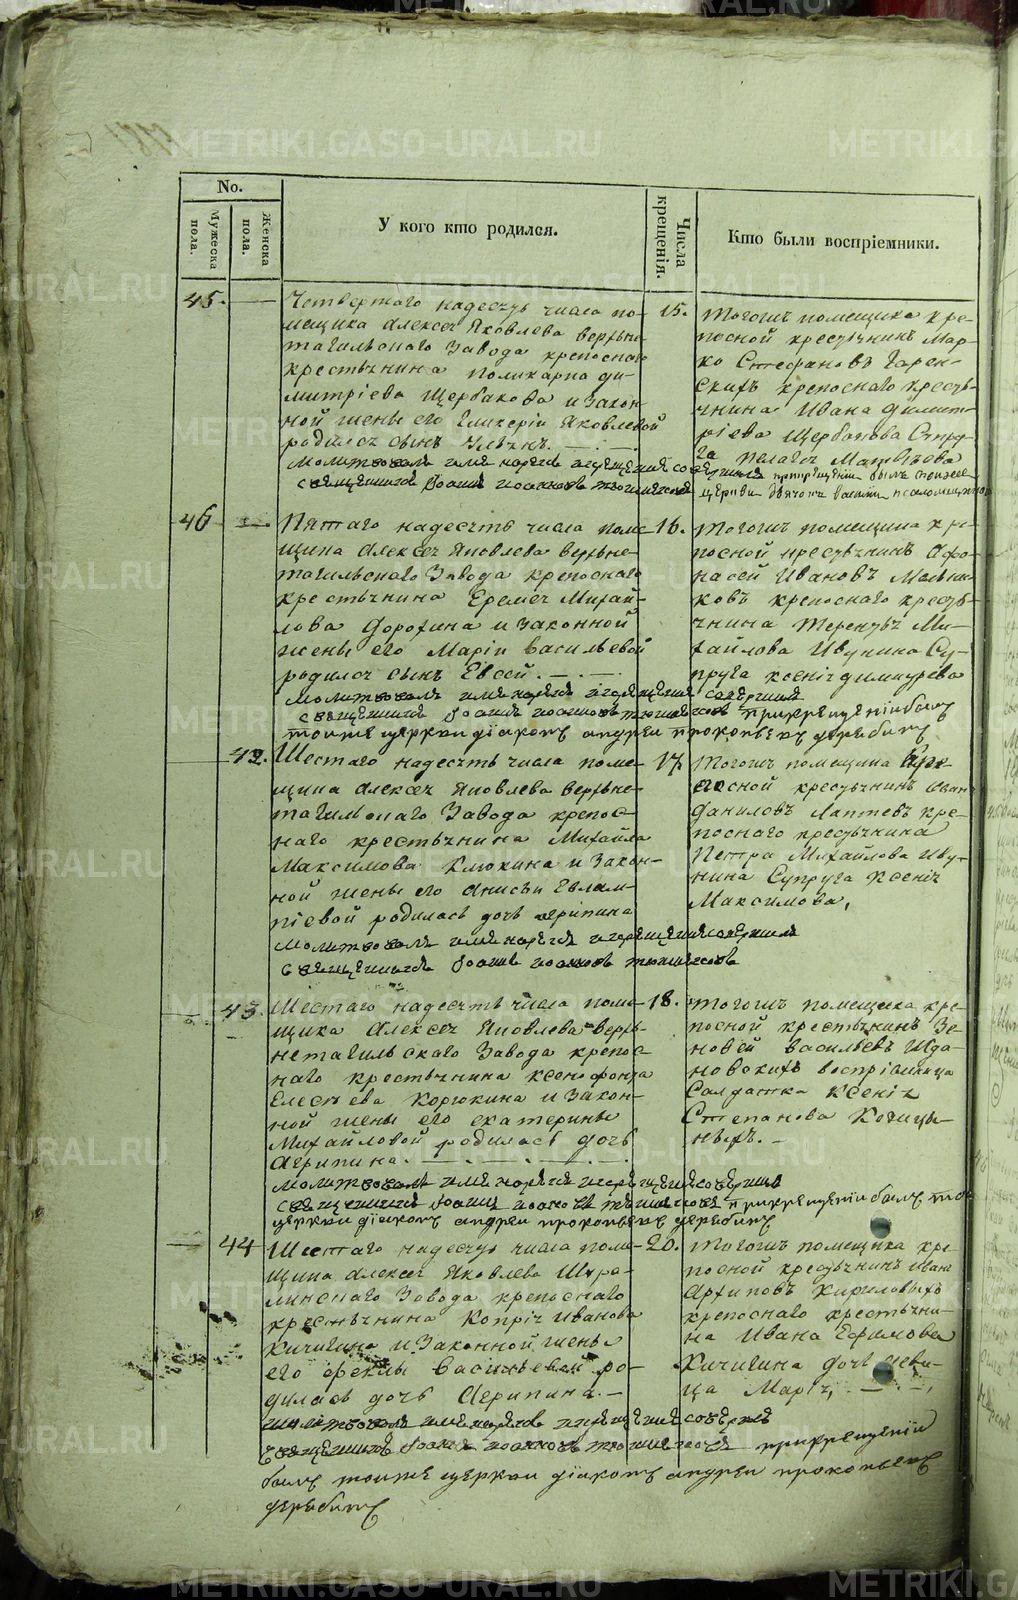 METRIKI.GASO-URAL.RU
No.
Мужеска пола.
Женска пола.
У кого кто родился.
Числа крещенія.
Кто были воспріемники.
45.
Четвертаго надесять числа по-
мещика Алексея Яковлева верхне-
тагильскаго Завода крепоснаго
крестьянина Поликарпа Ди-
митріева Щербакова и закон-
ной жены его Гликеріи Яковлевой
родился сынъ
Молитвовалъ имя нареклъ и крещеніе совершилъ
священникъ Іоаннъ Іоанновъ
15.
Тогожъ помещика кре-
посной крестьянинъ Мар-
ко Стефановъ Гарен-
скихъ крепоснаго кресть-
янина Ивана Димит-
ріева Щербакова Супру-
га Пелагея Матвеева
при крещеніи былъ тоя же
церкви дьячокъ
46
Пятаго надесять числа поме-
щика Алексея Яковлева верхне-
тагильскаго Завода крепоснаго
крестьянина Еремея Михай-
лова Дорохина и Законной
жены его Маріи Васильевой
родился сынъ Евсей.
Молитвовалъ имя нареклъ и крещеніе совершилъ
священникъ Іоаннъ Іоанновъ при крещеніи былъ
тоиже церкви діаконъ Андреи Прокопьевъ Дерябинъ
16.
Тогожъ помещика кре-
посной крестьянинъ Афо-
насей Ивановъ Мельни-
ковъ крепоснаго кресть-
янина Терентья Ми-
хайлова Ивунина Су-
пруга Ксенія Димитрева
42.
Шестаго надесять числа поме-
щика Алексея Яковлева верхне-
тагильскаго Завода крепос-
наго крестьянина Михайла
Максимова Клюкина и Закон-
ной жены его Анисьи Евлам-
піевой родилась дочь Агрипина
Молитвовалъ имя нареклъ и крещеніе совершилъ
священникъ Іоаннъ Іоанновъ
17.
Тогожъ помещика кре-
посной крестьянинъ Иванъ
Даниловъ Лаптевъ кре-
поснаго крестьянина
Петра Михайлова Иву-
нина Супруга Ксенія
Максимова.
43.
Шестаго надесять числа поме-
щика Алексея Яковлева верх-
нетагильскаго Завода крепос-
наго крестьянина Ксенофонта
Елесеева Корюкина и Закон-
ной жены его Екатерины
Михайловой родилась дочь
Агрипина.
Молитвовалъ имя нареклъ и крещеніе совершилъ
священникъ Іоаннъ Іоанновъ при крещеніи былъ тои
церкви діаконъ Андреи Прокопьевъ Дерябинъ
18.
Тогожъ помещика кре-
посной крестьянинъ Зе-
новей Васильевъ Жда-
новскихъ воспріемница
Салдатка Ксенія
Степанова Козицы-
ныхъ.
44
Шестаго надесять числа поме-
щика Алексея Яковлева Шура-
линскаго Завода крепоснаго
крестьянина Копрія Иванова
Кичигина и Законной жены
его Феклы Васильевой ро-
дилась дочь Агрипина.
Молитвовалъ имя нареклъ и крещеніе совершилъ
священникъ Іоаннъ Іоанновъ при крещеніи
былъ тоиже церкви діаконъ Андреи Прокопьевъ
Дерябинъ
20.
Тогожъ помещика кре-
посной крестьянинъ Иванъ
Архиповъ Кириловыхъ
крепоснаго крестьяни-
на Ивана Ефимова
Кичигина дочь деви-
ца Марія,